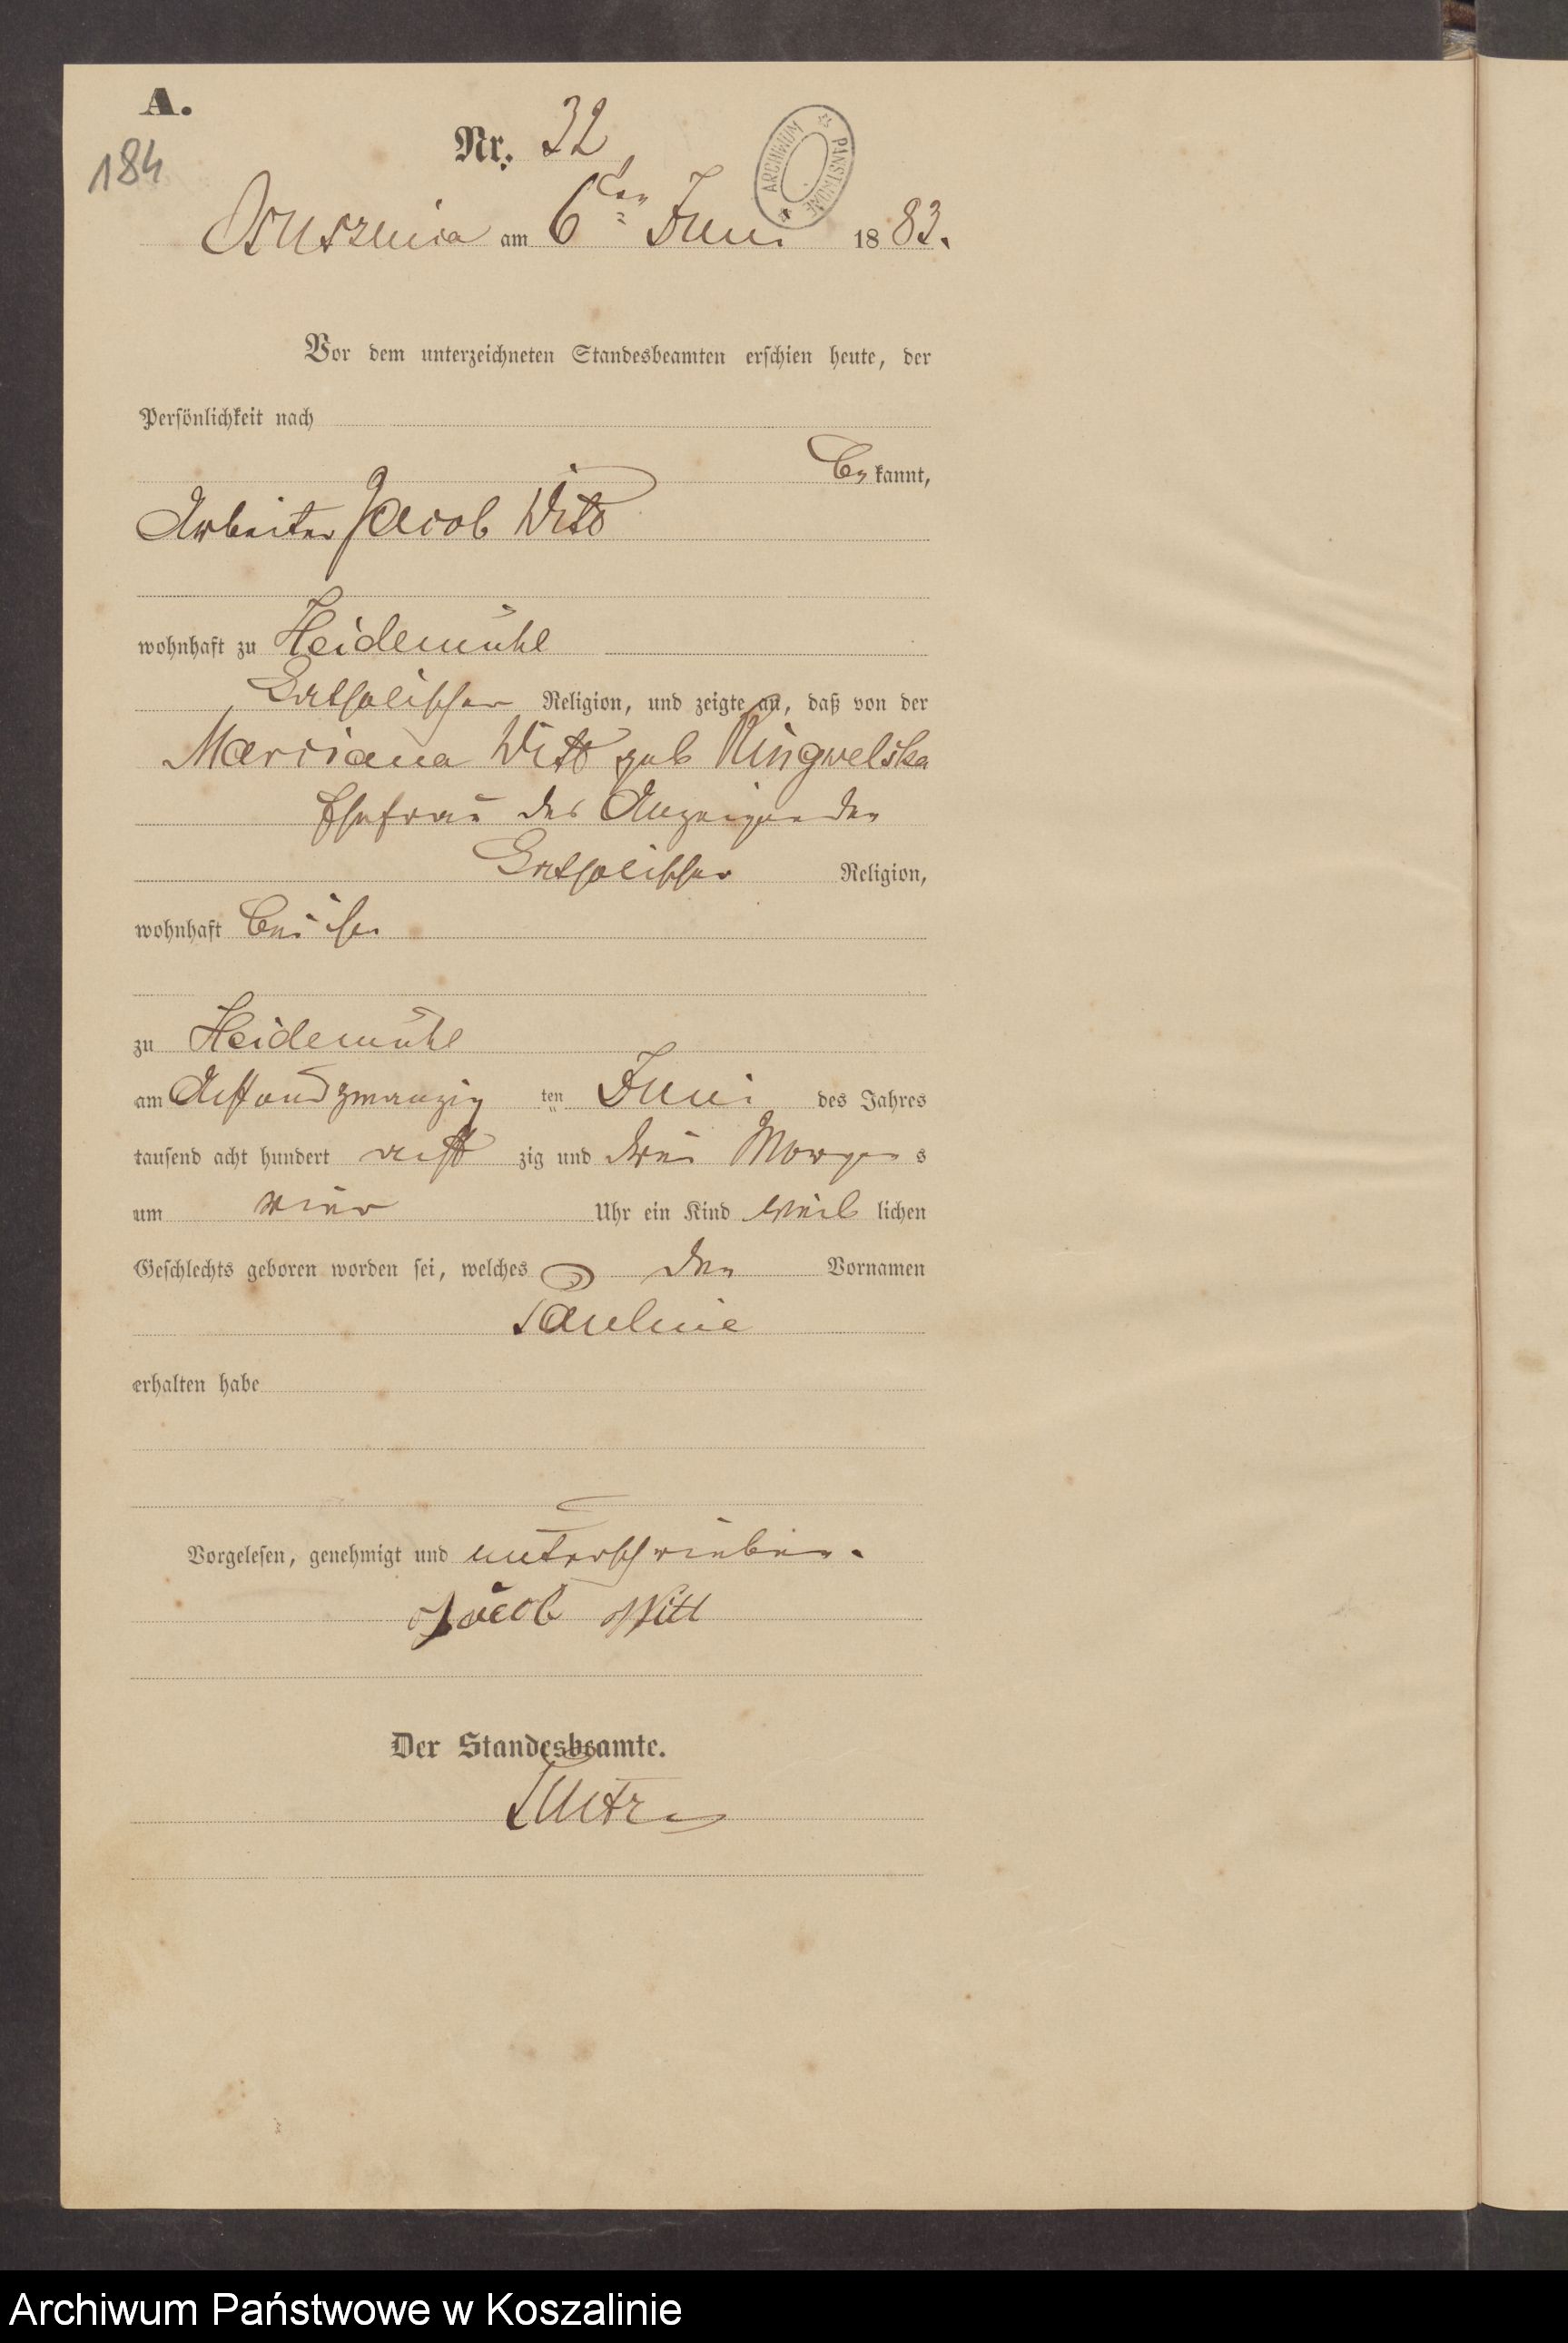 A.
184
Nr. 32
ARCHIWUM PAŃSTWOWE
Osuszniça am 6ten Juni 1883.
Vor dem unterzeichneten Standesbeamten erschien heute, der
Persönlichkeit nach
bekannt,
Arbeiter Jacob Witt
wohnhaft zu Heidemühl
katholischer Religion, und zeigte an, daß von der
Marianna Witt geb Ringwelska
Ehefrau des Anzeigenden
katholischer Religion,
wohnhaft bei ihm
zu Heidemühl
am Achtundzwanzig ten Juni des Jahres
tausend acht hundert acht zig und drei Morgens
um vier Uhr ein Kind weiblichen
Geschlechts geboren worden sei, welches den Vornamen
Pauline
erhalten habe
Vorgelesen, genehmigt und unterschrieben.
Jacob Witt
Der Standesbeamte.
Archiwum Państwowe w Koszalinie